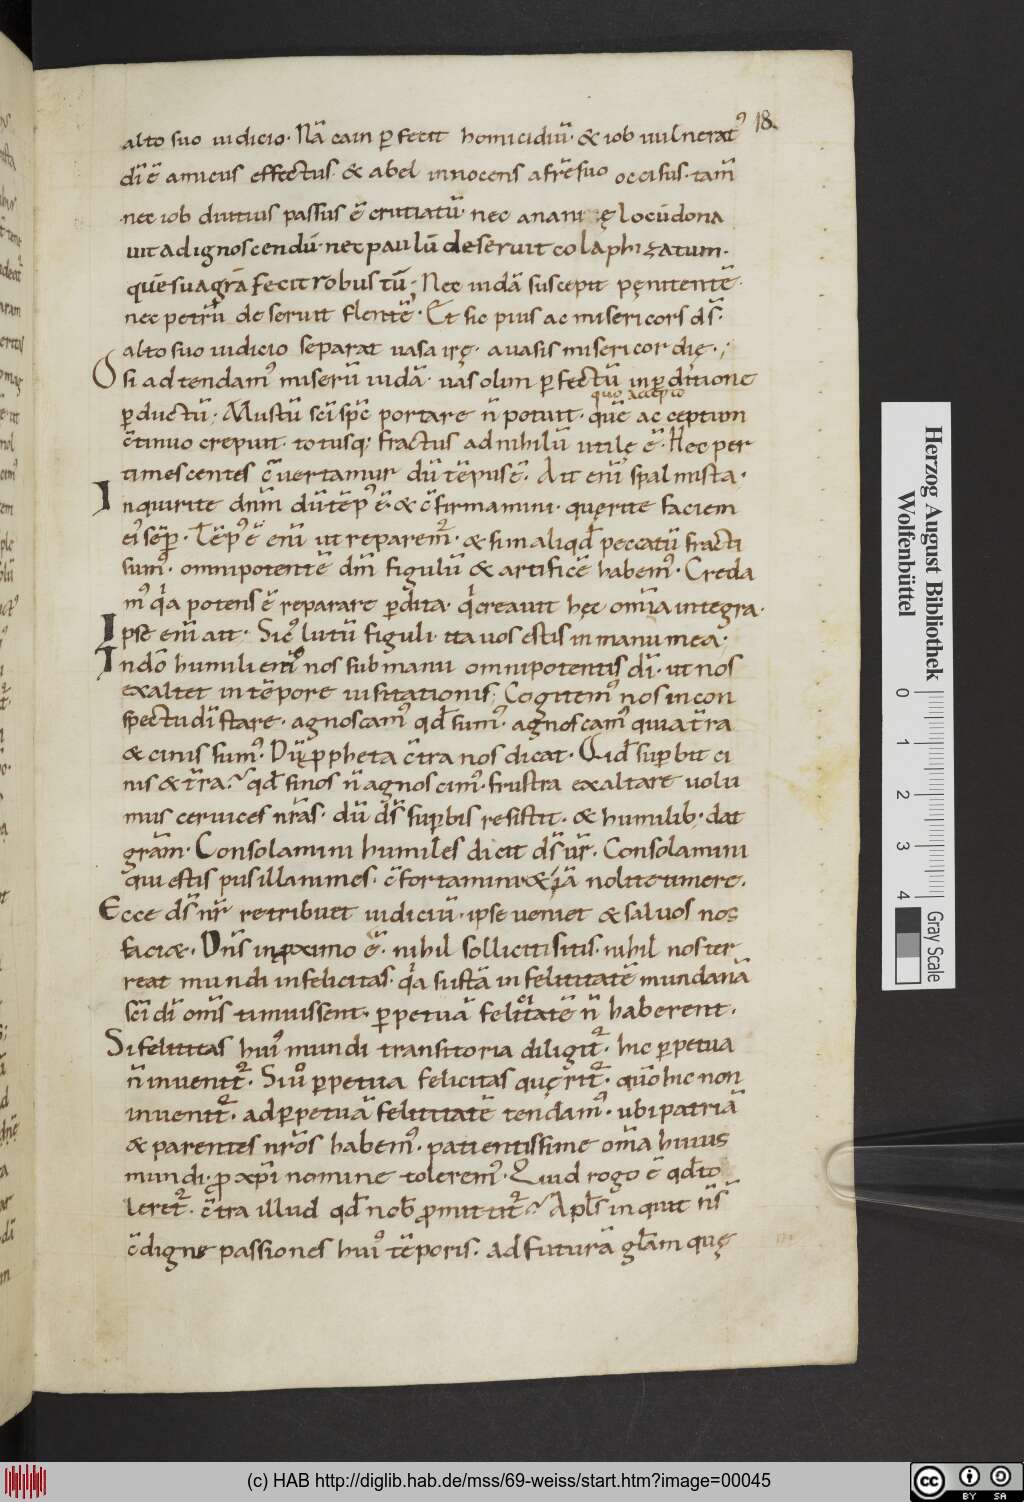 18.
alto suo iudicio. Nā cain ꝑfecit homicidiū. & iob uulneratꝰ
dī ē amicus effectus. & abel innocens a frē suo occisus. tam̄
nec iob diutius passus ē cruciatū. nec
uita dignoscendū. nec paulū deseruit colaphizatum.
quē sua grā fecit robustū; Nec iudā suscepit pęnitentē.
nec petrū deseruit flentē. Et sic pius ac misericors ds̄.
alto suo iudicio separat uasa irę. a uasis misericordię.;
O si adtendamꝰ miserū iudā. uas olim ꝑfectū in ꝑditione
quo accepto
ꝑductū; Mustū sc̄i sp̄c portare n̄ potuit. quē acceptum
c̄tinuo crepuit. totusq; fractus ad nihilū utilę ē. Hec per
timescentes c̄uertamur dū tēpus ē. Ait eni̅ spalmista.
Inquirite dnm̄ dū tēpꝰ ē. & c̄firmamini. quęrite faciem
eiꝰ sēꝑ. Tēpꝰ ē eni̅ ut reparemꝰ. & si in aliqđ peccatū fracti
sumꝰ. omnipotentē dm̄ figulū & artificē habemꝰ. Creda
mꝰ qͥa potens ē reparare ꝑdita. qͥ creauit hęc omīa integra.
Ipse eni̅ ait. Sicꝰ lutū figuli. ita uos estis in manu mea;
Indo humiliemꝰ nos sub manu omnipotentis dī. ut nos
exaltet in tēpore uisitationis; Cogitemꝰ nos in con
spectu dī stare. agnoscamꝰ qđ sumꝰ. agnoscamꝰ quia t̄ra
& cinis sumꝰ. ꝓpheta c̄tra nos dicat. Qid suꝑbit ci
nis & t̄ra? qđ si nos n̄ agnoscimꝰ. frustra exaltare uolu
mus ceruices nr̄as. dū ds̄ suꝑbis resistit. & humilib; dat
gram̄. Consolamini humiles dicit ds̄ ur̄. Consolamini
qui estis pusillanimes. c̄fortamini nolite timere.
Ecce ds̄ nr̄ retribuet iudiciū. ipse ueniet & saluos nos
faciæ. Dn̄s in ꝓximo ē. nihil solliciti sitis. nihil nos ter
reat mundi infelicitas. qͥa iustā infelicitatē mundanā
sc̄i dī om̄s timuissent. ꝑpetuā felicitatē n̄ haberent.
Si felicitas huiꝰ mundi transitoria diligit᷑. hic ꝑpetua
n̄ inuenit᷑. Siuͦ ꝑpetua felicitas quęrit᷑. quō hic non
inuenit᷑. ad ꝑpetuā felicitatē tendamꝰ. ubi patriā
& parentes nr̄os habemꝰ. patientissime om̄a huius
mundi. ꝓ xp̄i nomine toleremꝰ. Quid rogo ē qđ to
leret᷑. c̄tra illud qđ nob̄ ꝓmittit᷑? Apl̄s inquit n̄ s̄
c̄digne passiones huiꝰ tēporis. ad futurā gl̄am quę
Herzog August Bibliothek
Wolfenbüttel
0 1 2 3 4
Gray Scale
(c) HAB http://diglib.hab.de/mss/69-weiss/start.htm?image=00045
cc BY SA